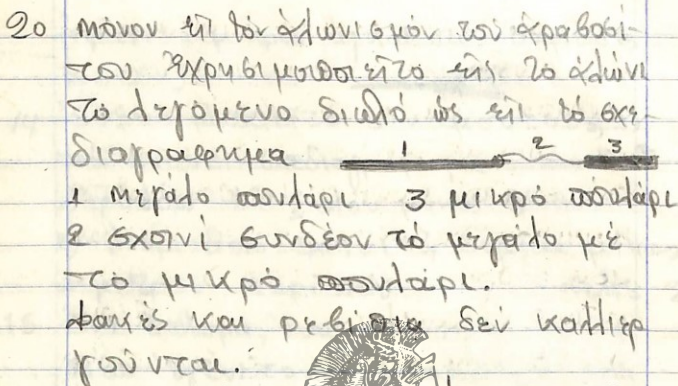 20 μόνον εἰς τόν ἁλωνισμόν τοῦ ἀραβοσί-
του ἐχρησιμοποιεῖτο εἰς τό ἁλώνι
τό λεγόμενο διπλό ὡς εἰς τό σχε-
διαγράφημα 1 2 3
1 μεγάλο πουλάρι 3 μικρό πουλάρι
2 σχοινί συνδέον τό μεγάλο μέ
τό μικρό πουλάρι.
φακές και ρεβίθια δέν καλλιερ
γοῦνται.